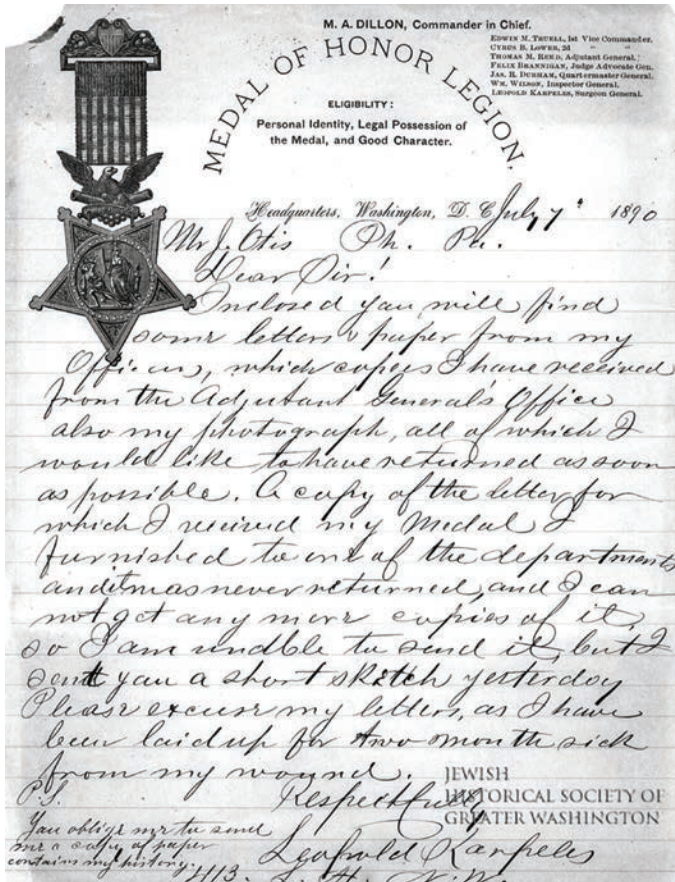 M. A. DILLON, Commander in Chief.
EDWIN M. TRUELL, 1st Vice Commander.
CYRUS B. LOWER, 2d " "
THOMAS M. REED, Adjutant General.
FELIX BRANNIGAN, Judge Advocate Gen.
JAS. R. DURHAM, Quartermaster General.
WM. WILSON, Inspector General.
LEOPOLD KARPELES, Surgeon General.
MEDAL OF HONOR LEGION.
ELIGIBILITY:
Personal Identity, Legal Possession of
the Medal, and Good Character.
Headquarters, Washington, D. C. July 7" 1890
Mr J. Otis Ph. Pa.
Dear Sir!
Inclosed you will find
some letters & paper from my
Officers, which copies I have received
from the Adjutant General's Office
also my photograph, all of which I
would like to have returned as soon
as possible. A copy of the letter for
which I received my Medal I
furnished to one of the departments
and it was never returned, and I can
not get any more copies of it,
so I am unable to send it, but I
sent you a short sketch yesterday
Please excuse my letters, as I have
been laid up for two month sick
from my wound.
Respectfully
Leopold Karpeles
P.S.
You oblige me to send
me a copy of paper
contains my history.
413. N.W.
JEWISH
HISTORICAL SOCIETY OF
GREATER WASHINGTON